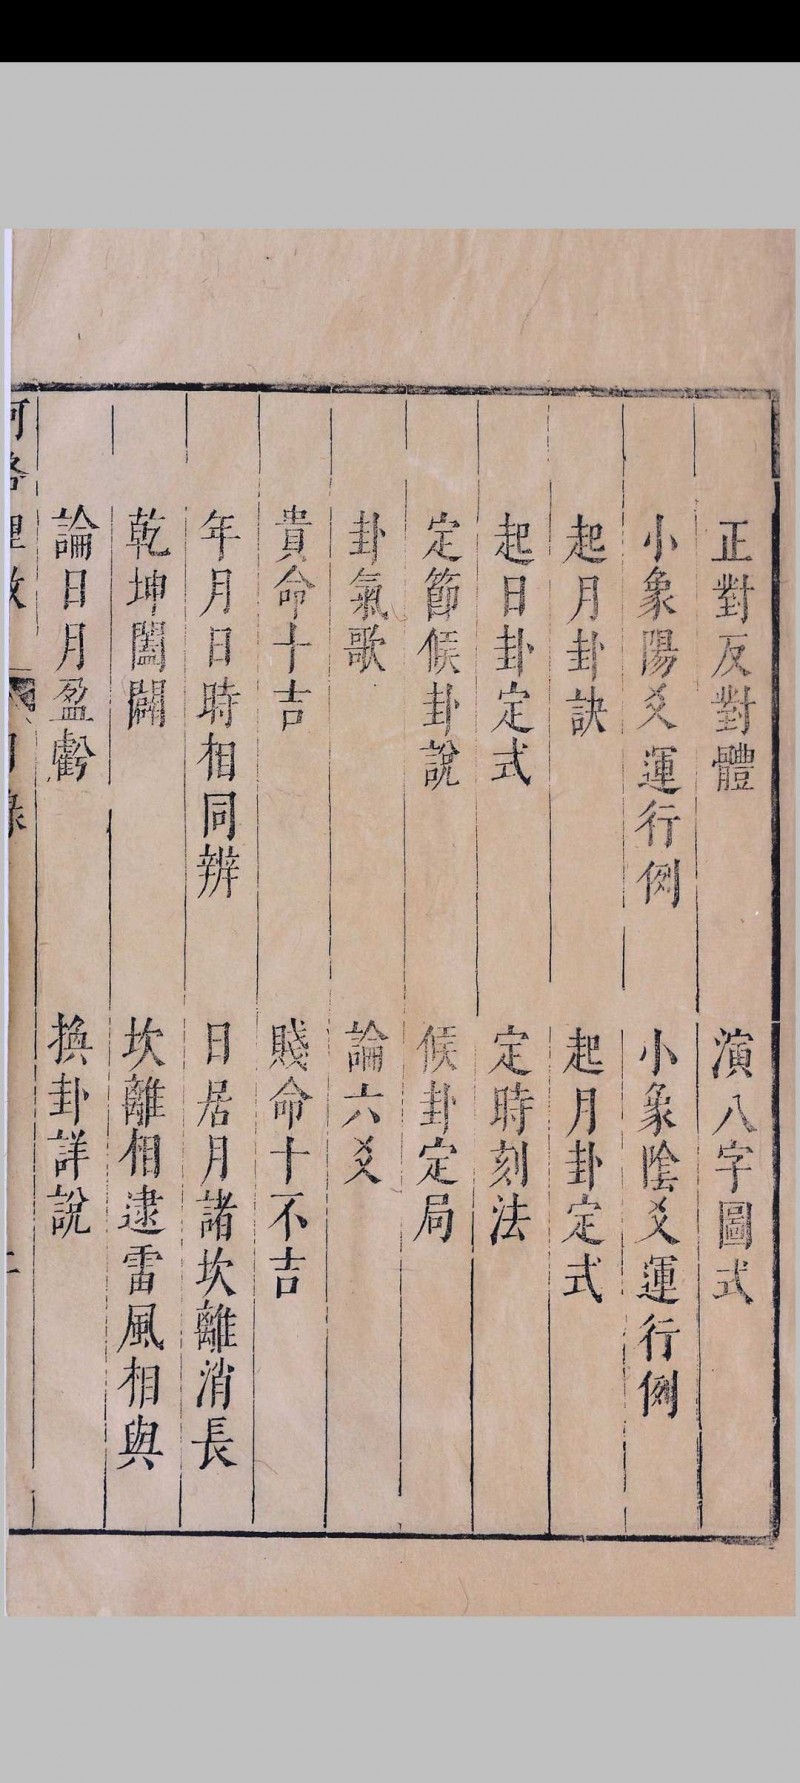 正對反對體　演八字圖式
小象陽爻運行例　小象陰爻運行例
起月卦訣　起月卦定式
起日卦定式　定時刻法
定節候卦說　候卦定局
卦氣歌　論六爻
貴命十吉　賤命十不吉
年月日時相同辨　日居月諸坎離消長
乾坤闔闢　坎離相逮雷風相與
論日月盈虧　換卦詳說